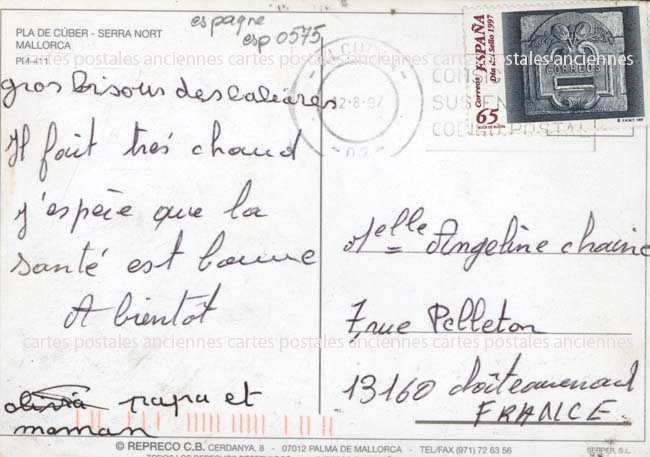 espagne
esp 0575
PLA DE CÚBER - SERRA NORT
MALLORCA
PM-411
gros bisous des baléares
Il fait trés chaud
j'espère que la
santé est bonne
A bientôt
olivia papa et
maman
12-8-97
CONS
CODIGO POSTAL
Correos ESPAÑA
Día del Sello 1997
65
CORREOS
Melle Angeline chaine
7, rue Pelleton
13160 châteaurenard
FRANCE
© REPRECO C.B. CERDANYA, 8 - 07012 PALMA DE MALLORCA - TEL/FAX (971) 72 63 56
SERPER, S.L.
cartes postales anciennes cartes postales anciennes cartes postales anciennes
cartes postales anciennes cartes postales anciennes